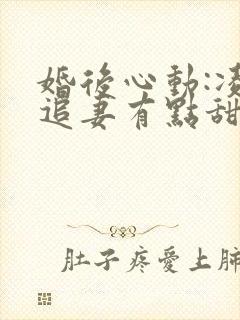 婚後心動:凌
追妻有點甜
肚子疼愛上肺